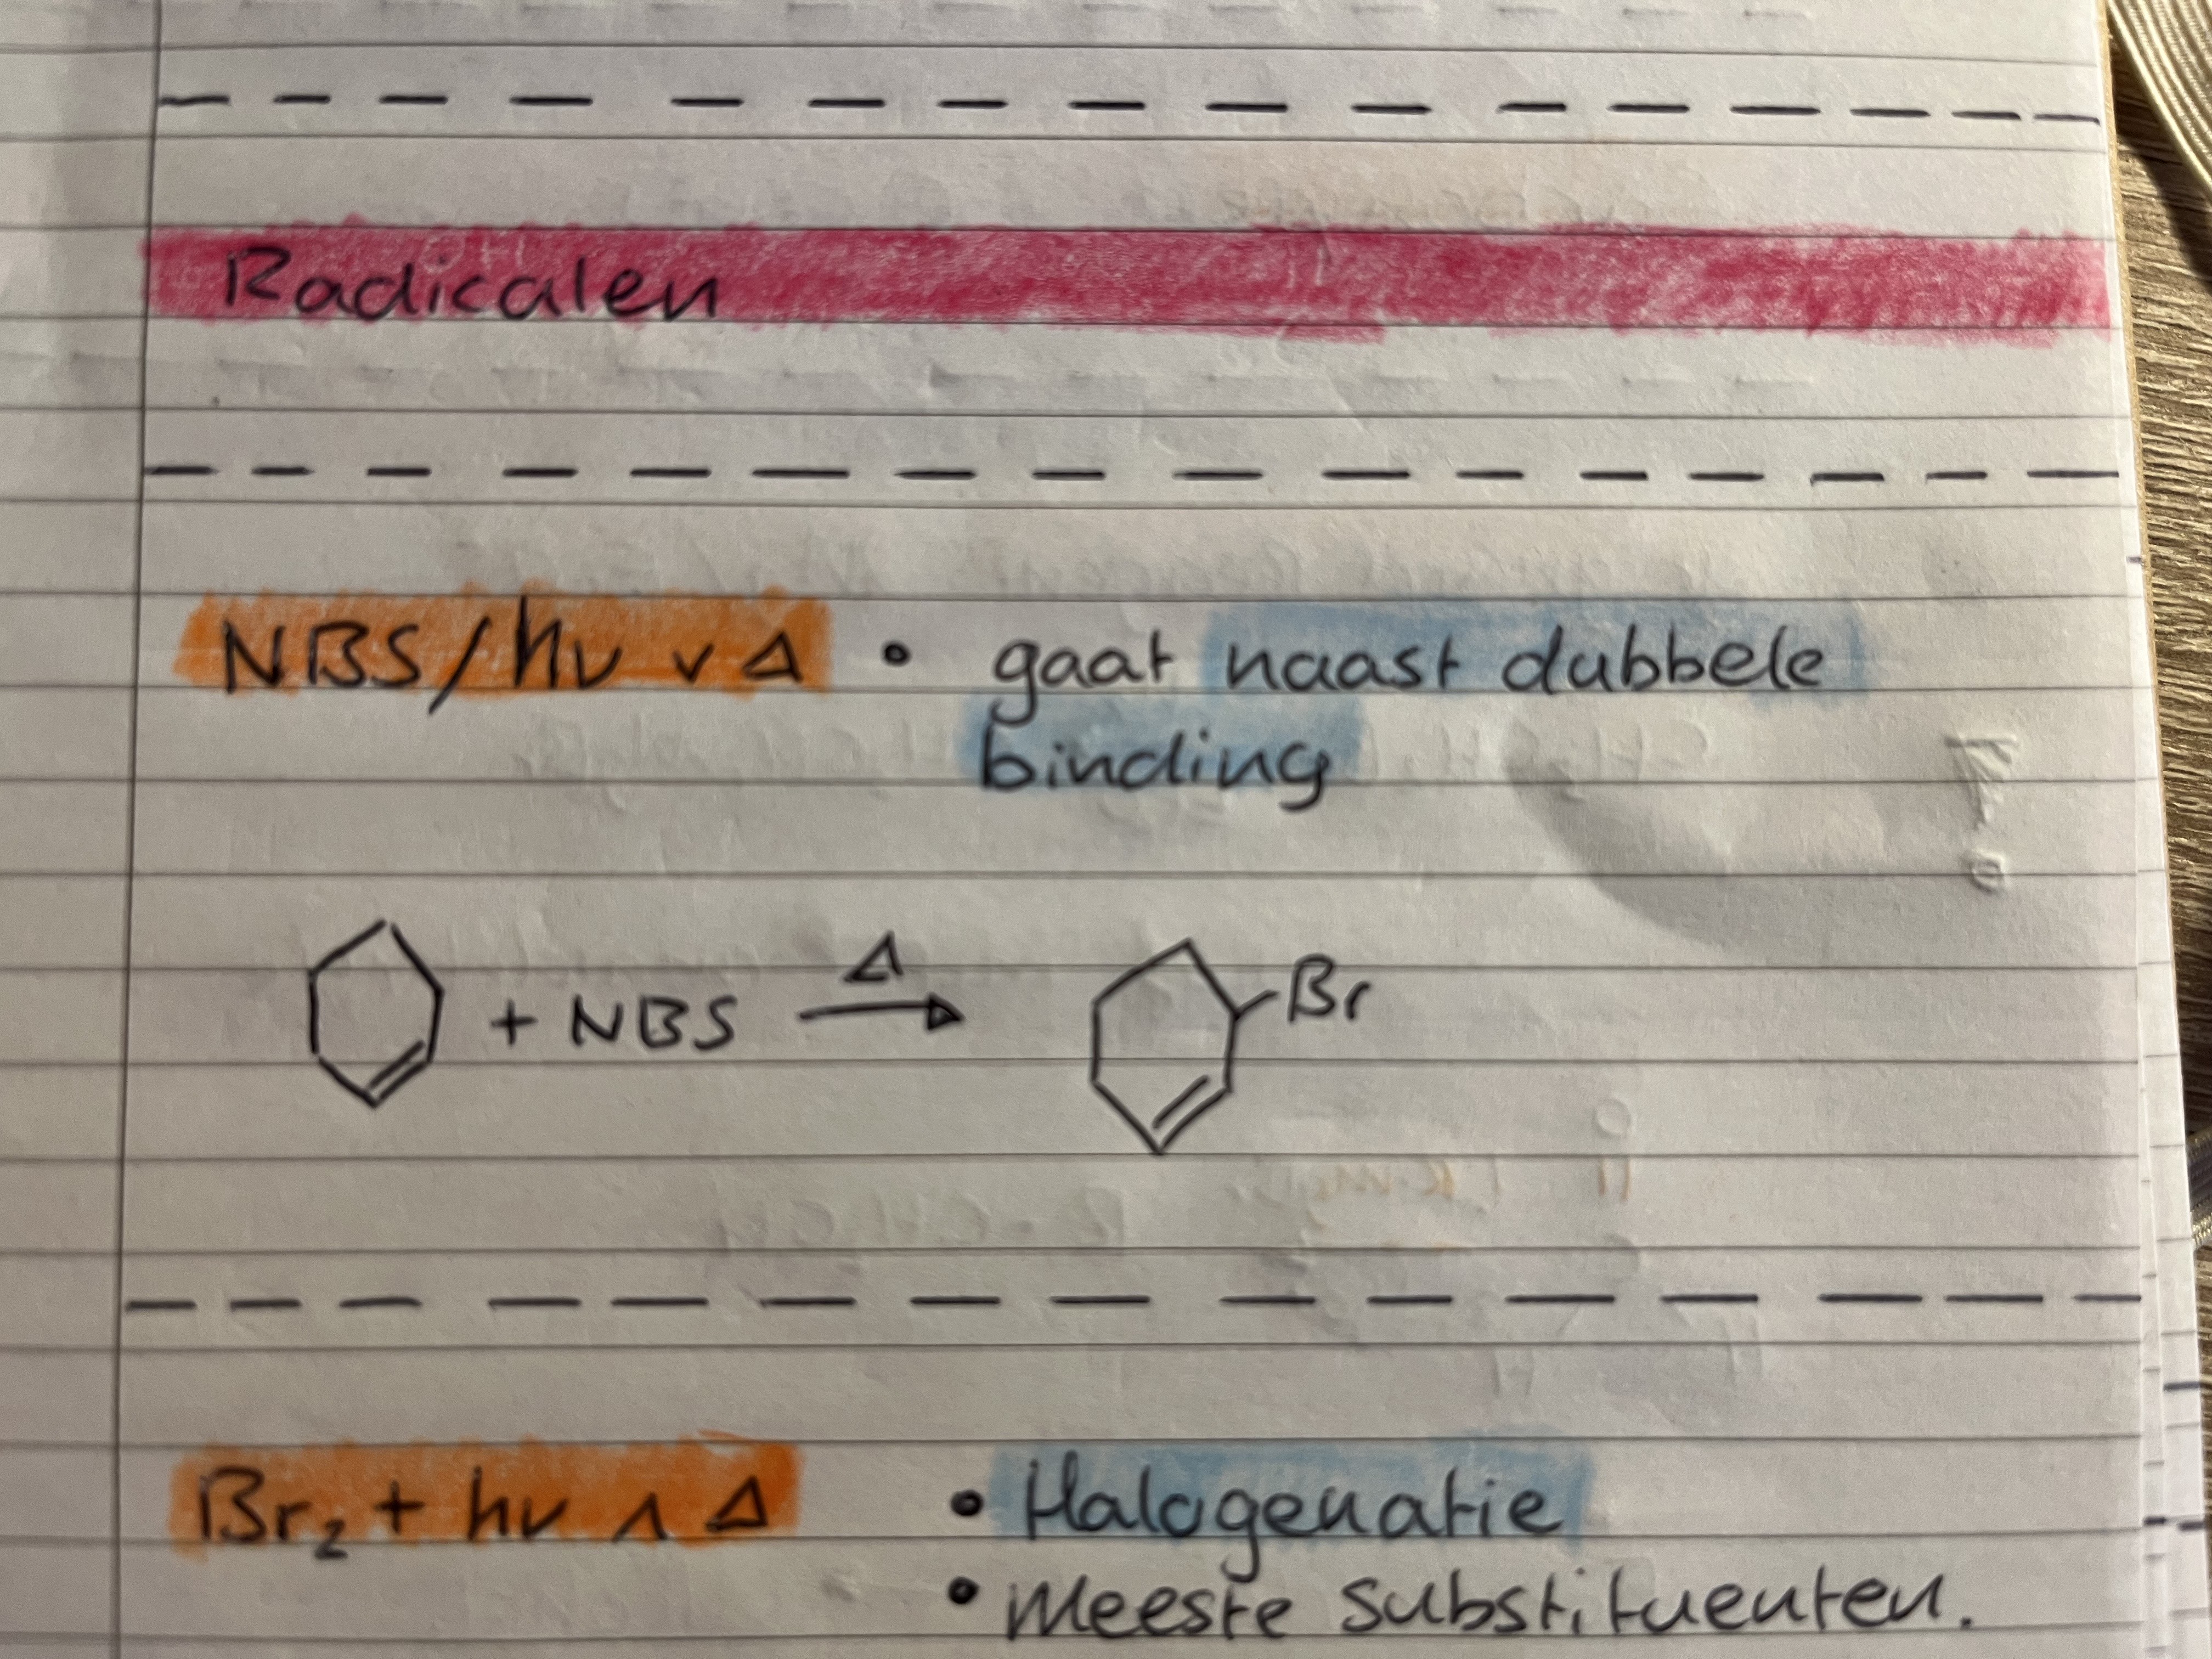 Radicalen
NBS/hν ∨ Δ • gaat naast dubbele
binding
+ NBS Δ → Br
Br₂ + hν ∧ Δ • Halogenatie
• Meeste substituenten.